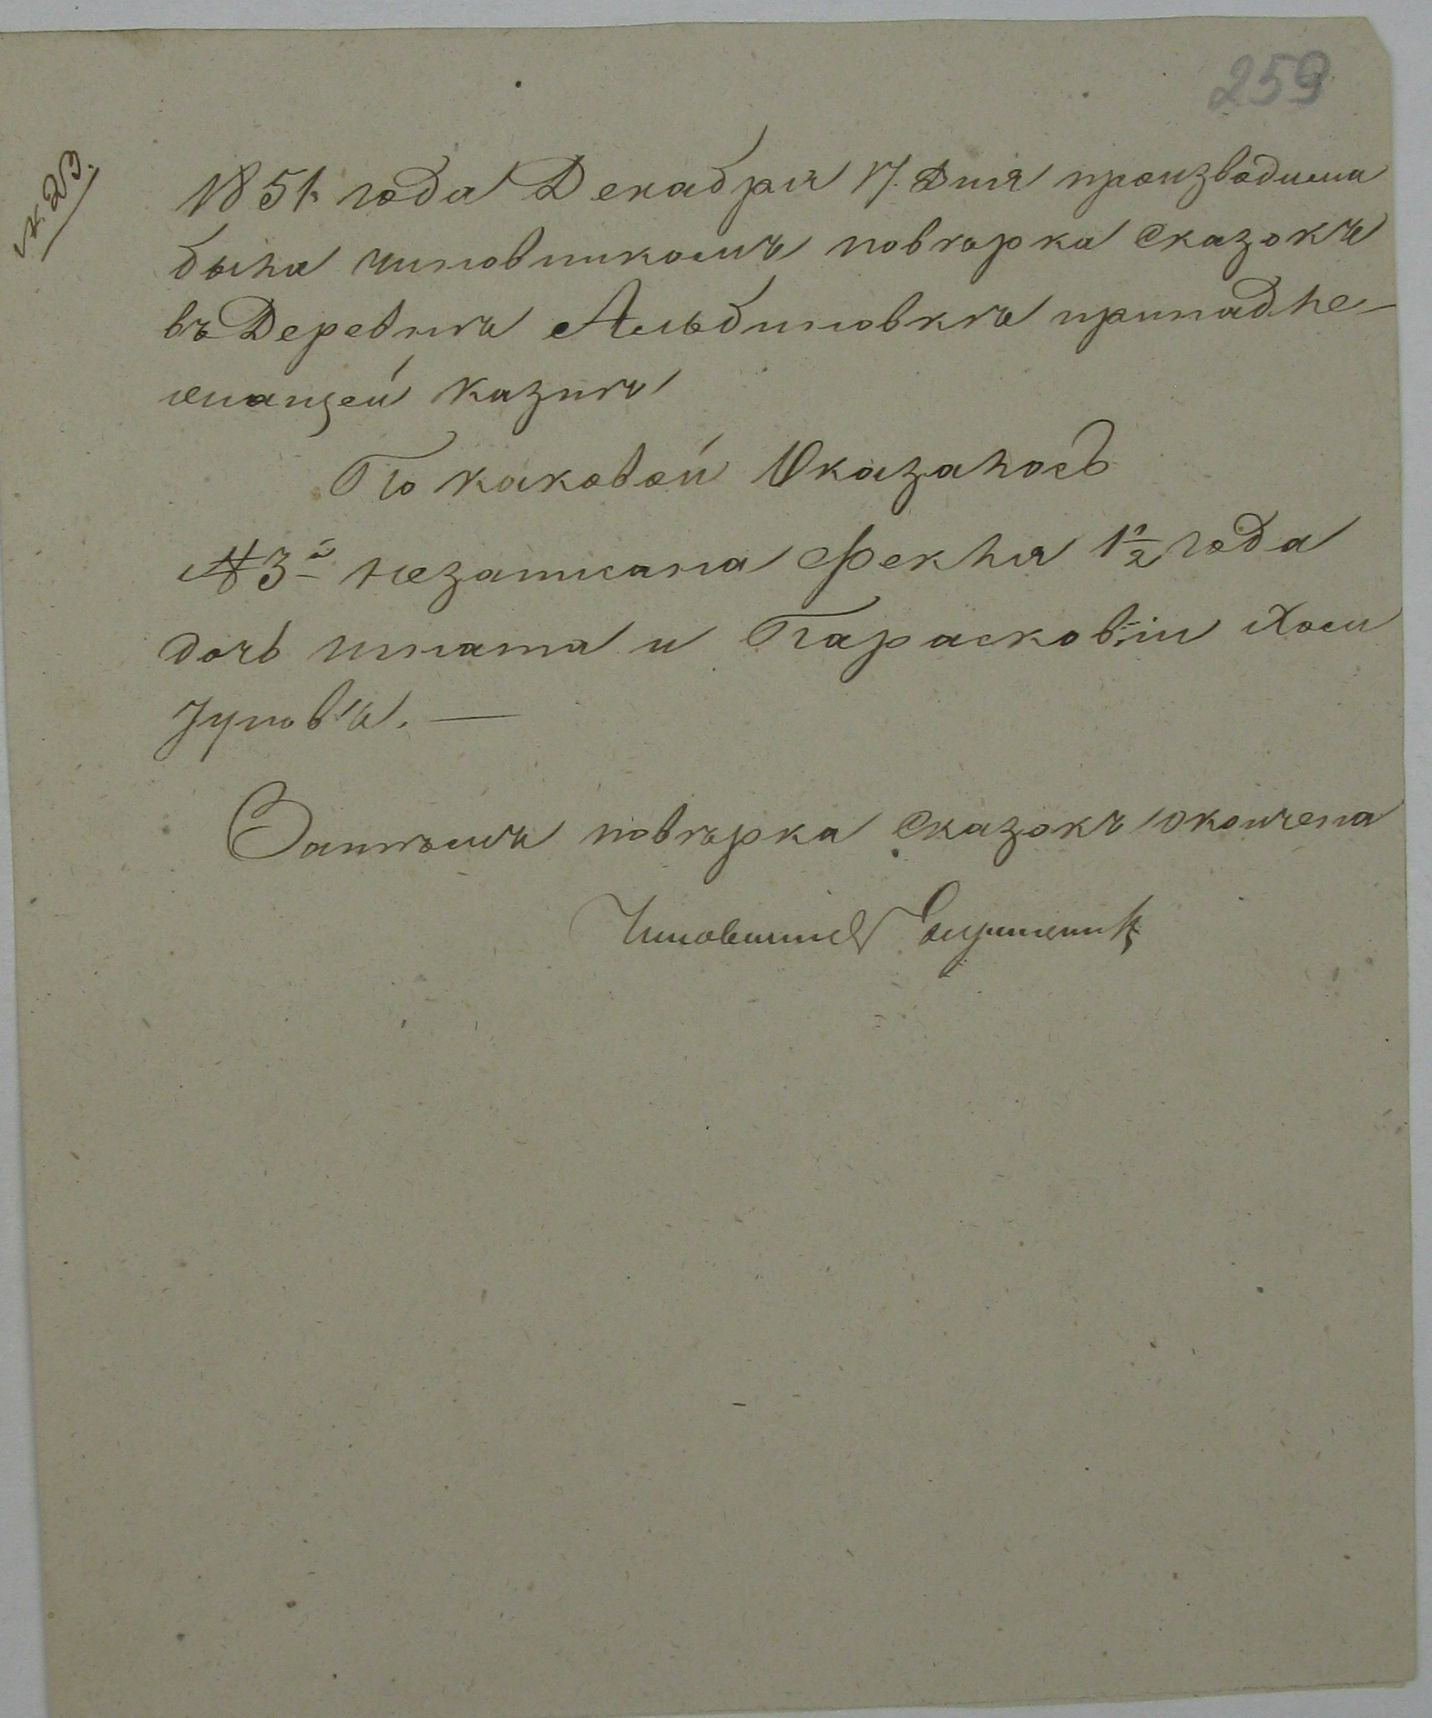 259
1851 года Декабря 17. Дня производима
была чиновникомъ повѣрка сказокъ
въ Деревнѣ Альбиновкѣ принадле-
жащей казнѣ
По каковой Оказалось
№ 3й незаписана Фекла 1½ года
дочь Игната и Парасковіи
Затѣмъ повѣрка сказокъ окончена
Чиновникъ